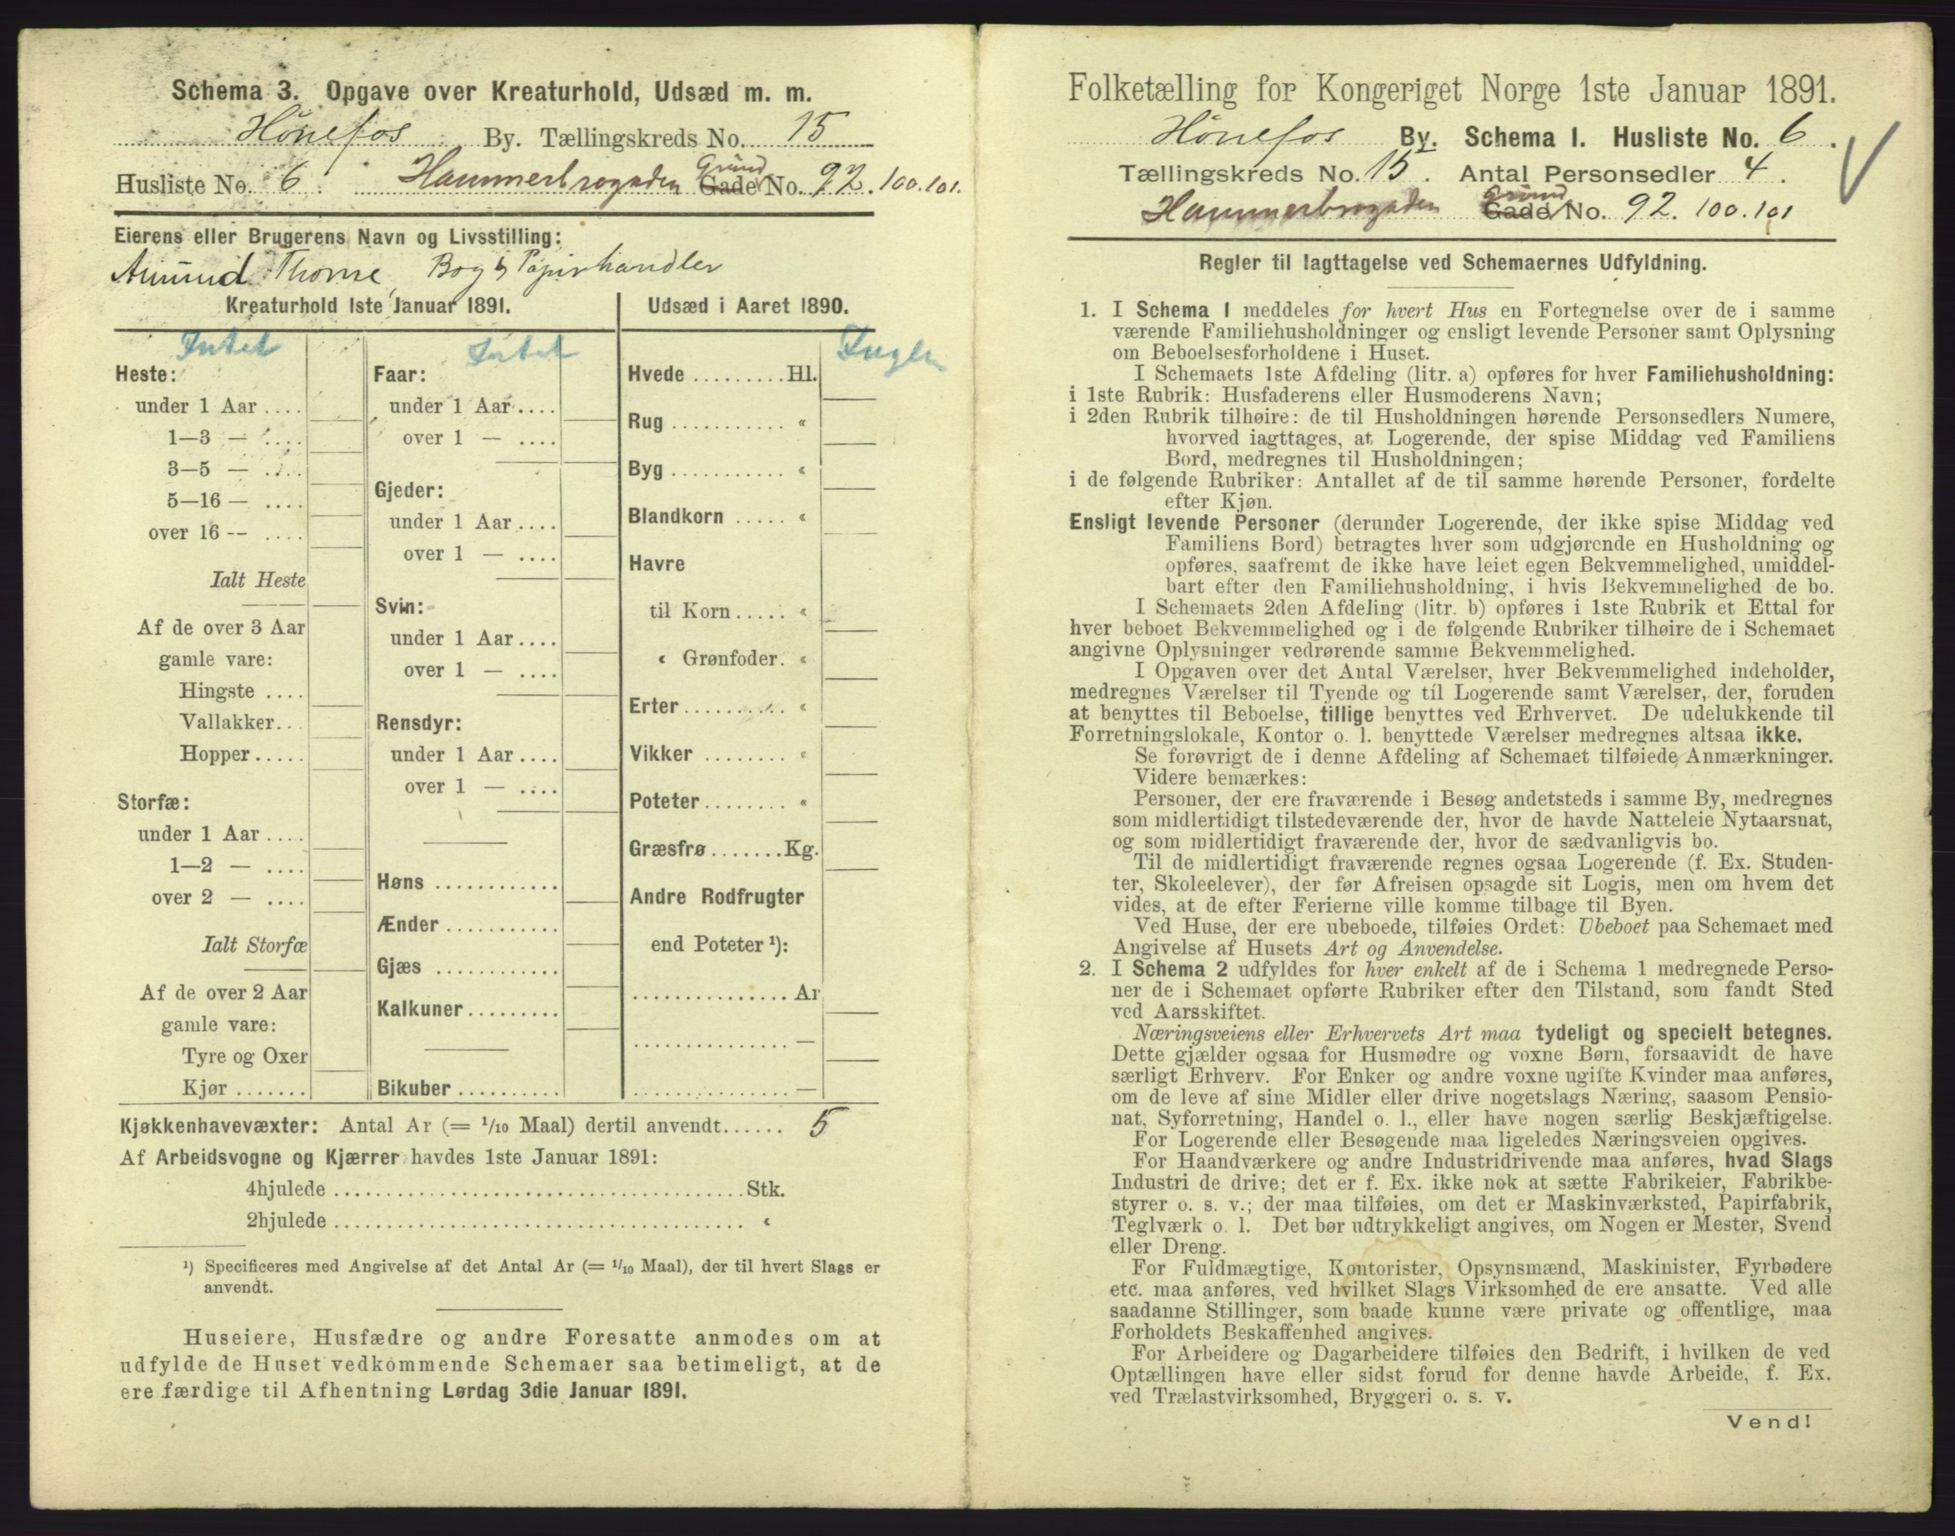 Schema 3. Opgave over Kreaturhold, Udsæd m. m.
Hönefos By. Tællingskreds No. 15
Husliste No. 6. Hammerbrogaden Gade Grund No. 92. 100. 101.
Eierens eller Brugerens Navn og Livsstilling:
Amund Thorne, Bog & Papirhandler
Kreaturhold 1ste Januar 1891.
Intet
Heste:
under 1 Aar ....
1—3 — ....
3—5 — ....
5—16 — ....
over 16 — ....
Ialt Heste
Af de over 3 Aar
gamle vare:
Hingste ....
Vallakker...
Hopper.....
Storfæ:
under 1 Aar ....
1—2 — ....
over 2 — ....
Ialt Storfæ
Af de over 2 Aar
gamle vare:
Tyre og Oxer
Kjør .......
Intet
Faar:
under 1 Aar....
over 1 — ....
Gjeder:
under 1 Aar....
over 1 — ....
Svin:
under 1 Aar....
over 1 — ....
Rensdyr:
under 1 Aar....
over 1 — ....
Høns ............
Ænder ...........
Gjæs ............
Kalkuner.........
Bikuber ..........
Udsæd i Aaret 1890.
Ingen
Hvede .........Hl.
Rug ........... «
Byg ........... «
Blandkorn ..... «
Havre
til Korn..... «
« Grønfoder. «
Erter.......... «
Vikker ........ «
Poteter........ «
Græsfrø.......Kg.
Andre Rodfrugter
end Poteter ¹):
............... Ar
............... —
............... —
Kjøkkenhavevæxter: Antal Ar (= 1/10 Maal) dertil anvendt...... 5
Af Arbeidsvogne og Kjærrer havdes 1ste Januar 1891:
4hjulede .....................................Stk.
2hjulede ..................................... «
¹) Specificeres med Angivelse af det Antal Ar (= 1/10 Maal), der til hvert Slags er
anvendt.
Huseiere, Husfædre og andre Foresatte anmodes om at
udfylde de Huset vedkommende Schemaer saa betimeligt, at de
ere færdige til Afhentning Lørdag 3die Januar 1891.
Folketælling for Kongeriget Norge 1ste Januar 1891.
Hönefos By. Schema 1. Husliste No. 6.
Tællingskreds No. 15. Antal Personsedler 4.
Hammerbrogaden Gade Grund No. 92. 100. 101
Regler til Iagttagelse ved Schemaernes Udfyldning.
1. I Schema 1 meddeles for hvert Hus en Fortegnelse over de i samme
værende Familiehusholdninger og ensligt levende Personer samt Oplysning
om Beboelsesforholdene i Huset.
I Schemaets 1ste Afdeling (litr. a) opføres for hver Familiehusholdning:
i 1ste Rubrik: Husfaderens eller Husmoderens Navn;
i 2den Rubrik tilhøire: de til Husholdningen hørende Personsedlers Numere,
hvorved iagttages, at Logerende, der spise Middag ved Familiens
Bord, medregnes til Husholdningen;
i de følgende Rubriker: Antallet af de til samme hørende Personer, fordelte
efter Kjøn.
Ensligt levende Personer (derunder Logerende, der ikke spise Middag ved
Familiens Bord) betragtes hver som udgjørende en Husholdning og
opføres, saafremt de ikke have leiet egen Bekvemmelighed, umiddel-
bart efter den Familiehusholdning, i hvis Bekvemmelighed de bo.
I Schemaets 2den Afdeling (litr. b) opføres i 1ste Rubrik et Ettal for
hver beboet Bekvemmelighed og i de følgende Rubriker tilhøire de i Schemaet
angivne Oplysninger vedrørende samme Bekvemmelighed.
I Opgaven over det Antal Værelser, hver Bekvemmelighed indeholder,
medregnes Værelser til Tyende og til Logerende samt Værelser, der, foruden
at benyttes til Beboelse, tillige benyttes ved Erhvervet. De udelukkende til
Forretningslokale, Kontor o. l. benyttede Værelser medregnes altsaa ikke.
Se forøvrigt de i denne Afdeling af Schemaet tilføiede Anmærkninger.
Videre bemærkes:
Personer, der ere fraværende i Besøg andetsteds i samme By, medregnes
som midlertidigt tilstedeværende der, hvor de havde Natteleie Nytaarsnat,
og som midlertidigt fraværende der, hvor de sædvanligvis bo.
Til de midlertidigt fraværende regnes ogsaa Logerende (f. Ex. Studen-
ter, Skoleelever), der før Afreisen opsagde sit Logis, men om hvem det
vides, at de efter Ferierne ville komme tilbage til Byen.
Ved Huse, der ere ubeboede, tilføies Ordet: Ubeboet paa Schemaet med
Angivelse af Husets Art og Anvendelse.
2. I Schema 2 udfyldes for hver enkelt af de i Schema 1 medregnede Perso-
ner de i Schemaet opførte Rubriker efter den Tilstand, som fandt Sted
ved Aarsskiftet.
Næringsveiens eller Erhvervets Art maa tydeligt og specielt betegnes.
Dette gjælder ogsaa for Husmødre og voxne Børn, forsaavidt de have
særligt Erhverv. For Enker og andre voxne ugifte Kvinder maa anføres,
om de leve af sine Midler eller drive nogetslags Næring, saasom Pensio-
nat, Syforretning, Handel o. l., eller have nogen særlig Beskjæftigelse.
For Logerende eller Besøgende maa ligeledes Næringsveien opgives.
For Haandværkere og andre Industridrivende maa anføres, hvad Slags
Industri de drive; det er f. Ex. ikke nok at sætte Fabrikeier, Fabrikbe-
styrer o. s. v.; der maa tilføies, om det er Maskinværksted, Papirfabrik,
Teglværk o. l. Det bør udtrykkeligt angives, om Nogen er Mester, Svend
eller Dreng.
For Fuldmægtige, Kontorister, Opsynsmænd, Maskinister, Fyrbødere
etc. maa anføres, ved hvilket Slags Virksomhed de ere ansatte. Ved alle
saadanne Stillinger, som baade kunne være private og offentlige, maa
Forholdets Beskaffenhed angives.
For Arbeidere og Dagarbeidere tilføies den Bedrift, i hvilken de ved
Optællingen have eller sidst forud for denne havde Arbeide, f. Ex.
ved Trælastvirksomhed, Bryggeri o. s. v.
Vend!